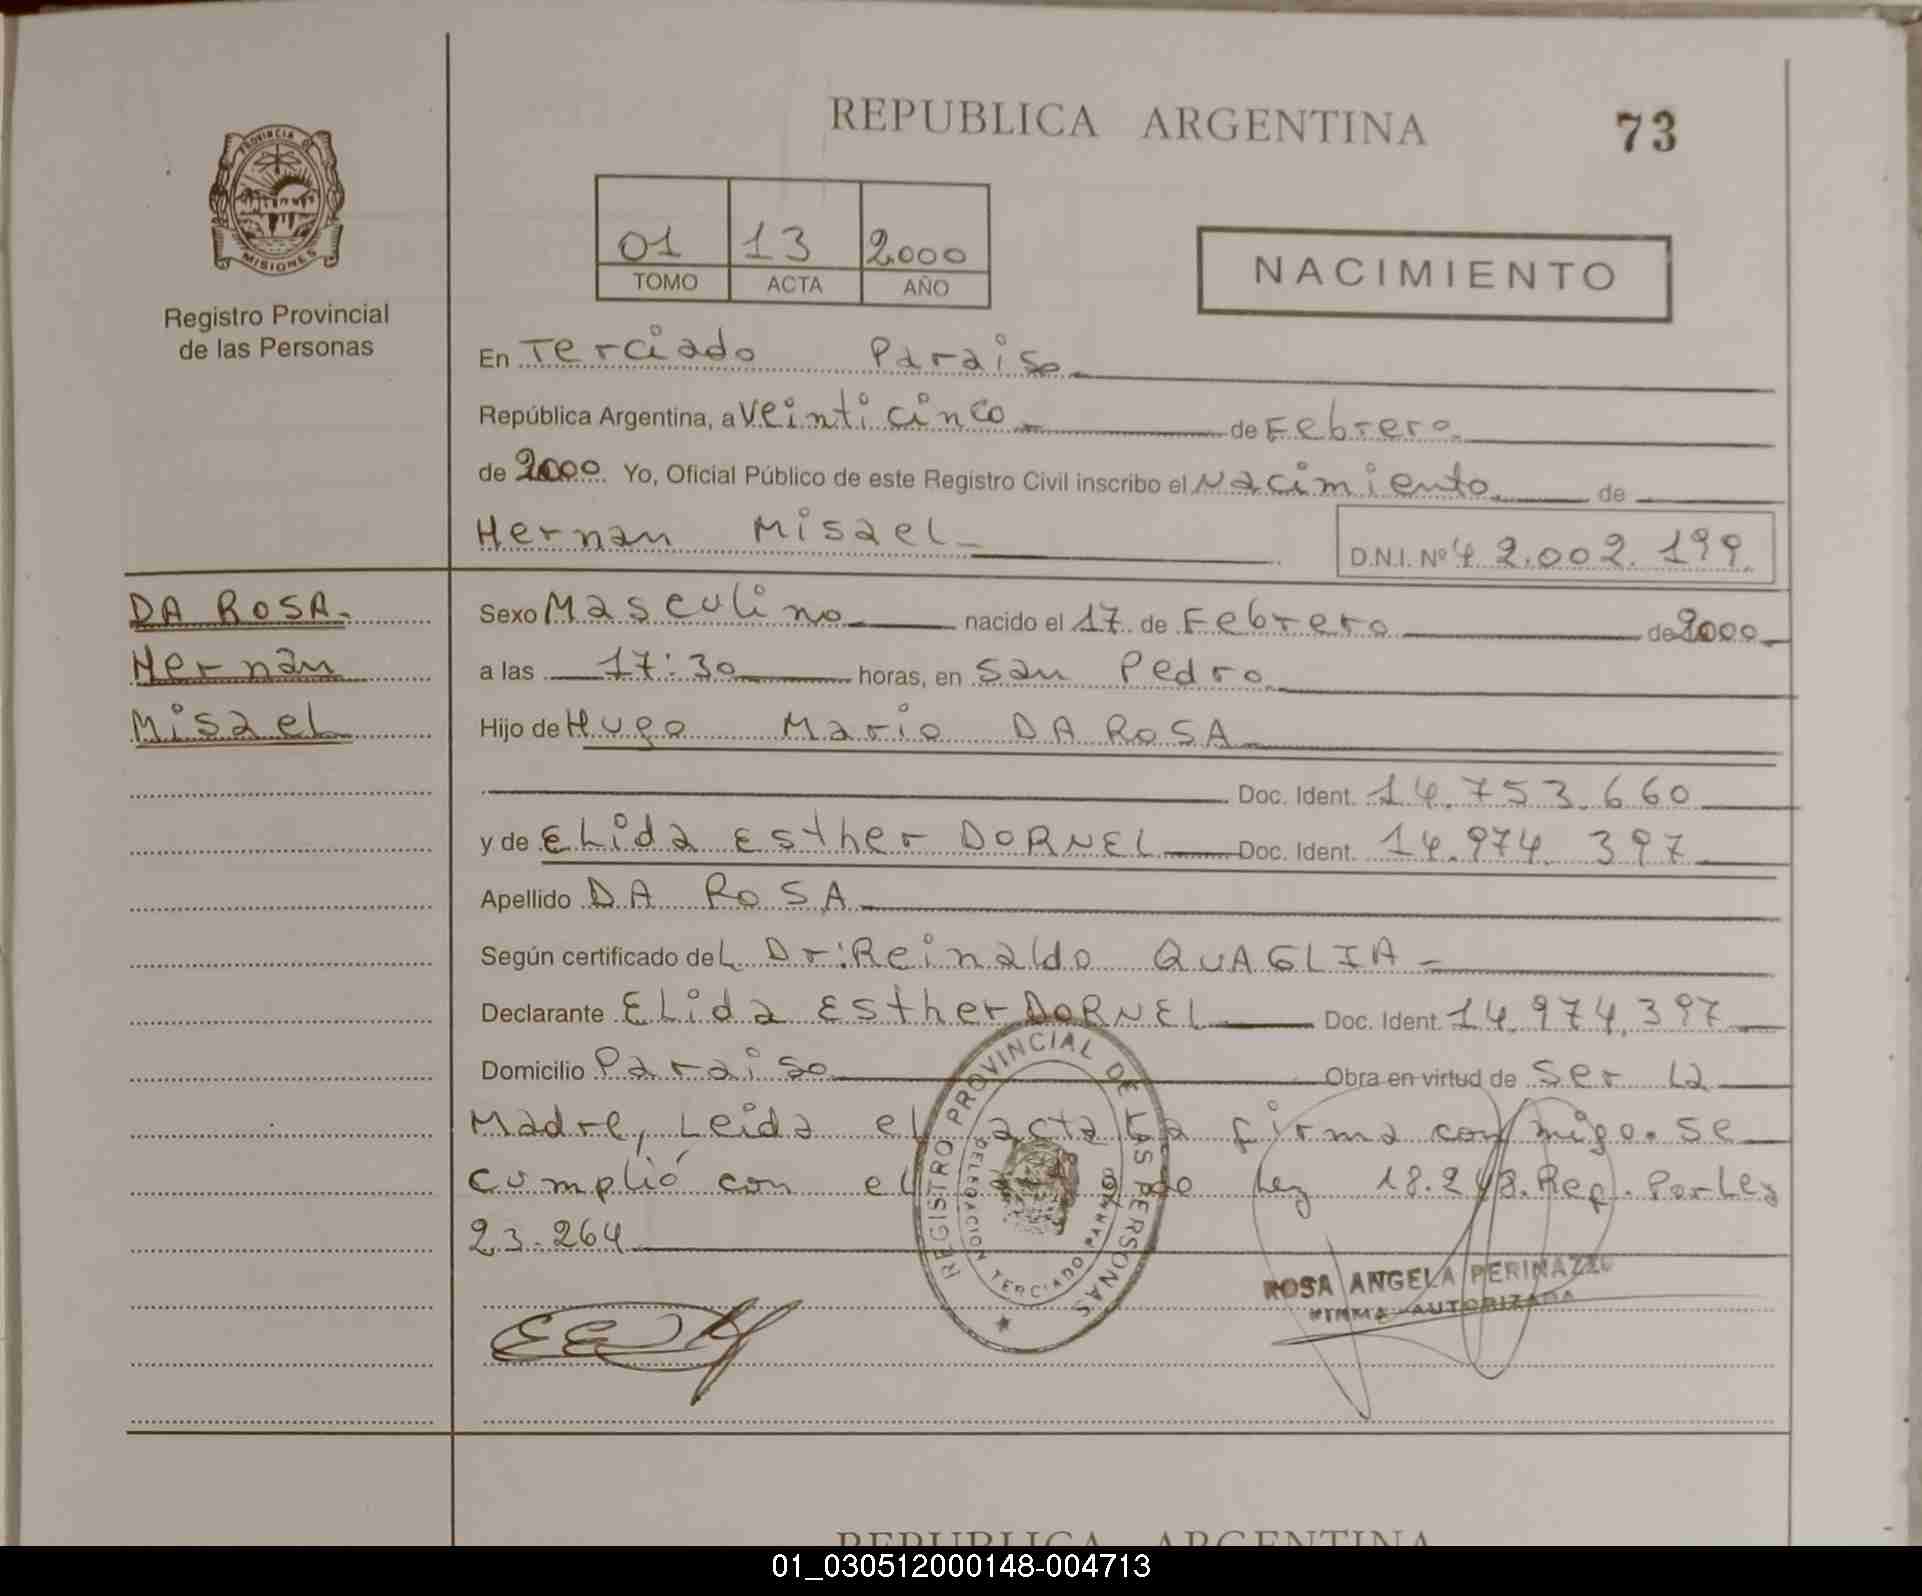 REPUBLICA ARGENTINA
73
PROVINCIA DE
MISIONES
Registro Provincial
de las Personas
01 13 2000
TOMO ACTA AÑO
NACIMIENTO
En Terciado Paraiso
República Argentina, a Veinticinco de Febrero
de 2000. Yo, Oficial Público de este Registro Civil inscribo el Nacimiento de
Hernan Misael
D.N.I. Nº 42.002.199.
DA ROSA.
Hernan
Misael
Sexo Masculino nacido el 17 de Febrero de 2000
a las 17:30 horas, en San Pedro
Hijo de Hugo Mario DA ROSA
Doc. Ident. 14.753.660
y de Elida Esther DORNEL Doc. Ident. 14.974.397
Apellido DA ROSA
Según certificado del Dr: Reinaldo QUAGLIA
Declarante Elida Esther DORNEL Doc. Ident. 14.974.397
Domicilio Paraiso Obra en virtud de Ser la
Madre, Leida el acta la firma conmigo. Se
cumplió con el Ley 18.248. Rep. Por Ley
23.264
REGISTRO PROVINCIAL DE LAS PERSONAS
DELEGACION TERCIADO PARAISO
ROSA ANGELA PERINAZZO
FIRMA AUTORIZADA
REPUBLICA ARGENTINA
01_030512000148-004713